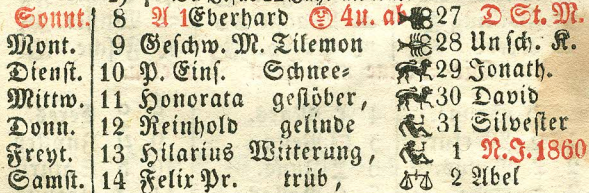 Sonnt. 8 A 1 Eberhard 4 u. a 27 D St. M.
Mont. 9 Geschw. M. Tilemon 28 Unsch. K.
Dienst. 10 P. Eins. Schnee= 29 Jonath.
Mittw. 11 Honorata gestöber, 30 David
Donn. 12 Reinhold gelinde 31 Silvester
Freyt. 13 Hilarius Witterung, 1 N. J. 1860
Samst. 14 Felix Pr. trüb, 2 Abel